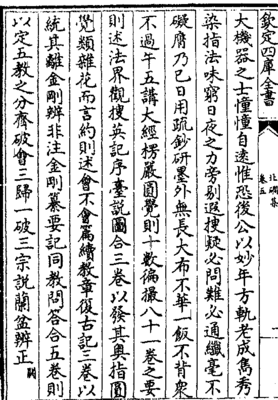 欽定四庫全書
北磵集
卷五
大機器之士憧憧自遠惟恐後公以妙年方軌老成雋秀
染指法味窮日夜之力旁剔遐搜疑必問難必通纖毫不
礙膺乃已日用疏鈔研墨外無長大布不華一飯不背衆
不過午五講大經楞嚴圓覺則十數徧撮八十一卷之要
則述法界觀搜英記序臺說圖合三卷以發其奥指圖
覺類雜花而言約則述會不會篇續教章復古記三卷以
統其離金剛辨非注金剛纂要記同教問答合五卷則
以定五教之分齊破會三歸一破三宗說蘭盆辨正